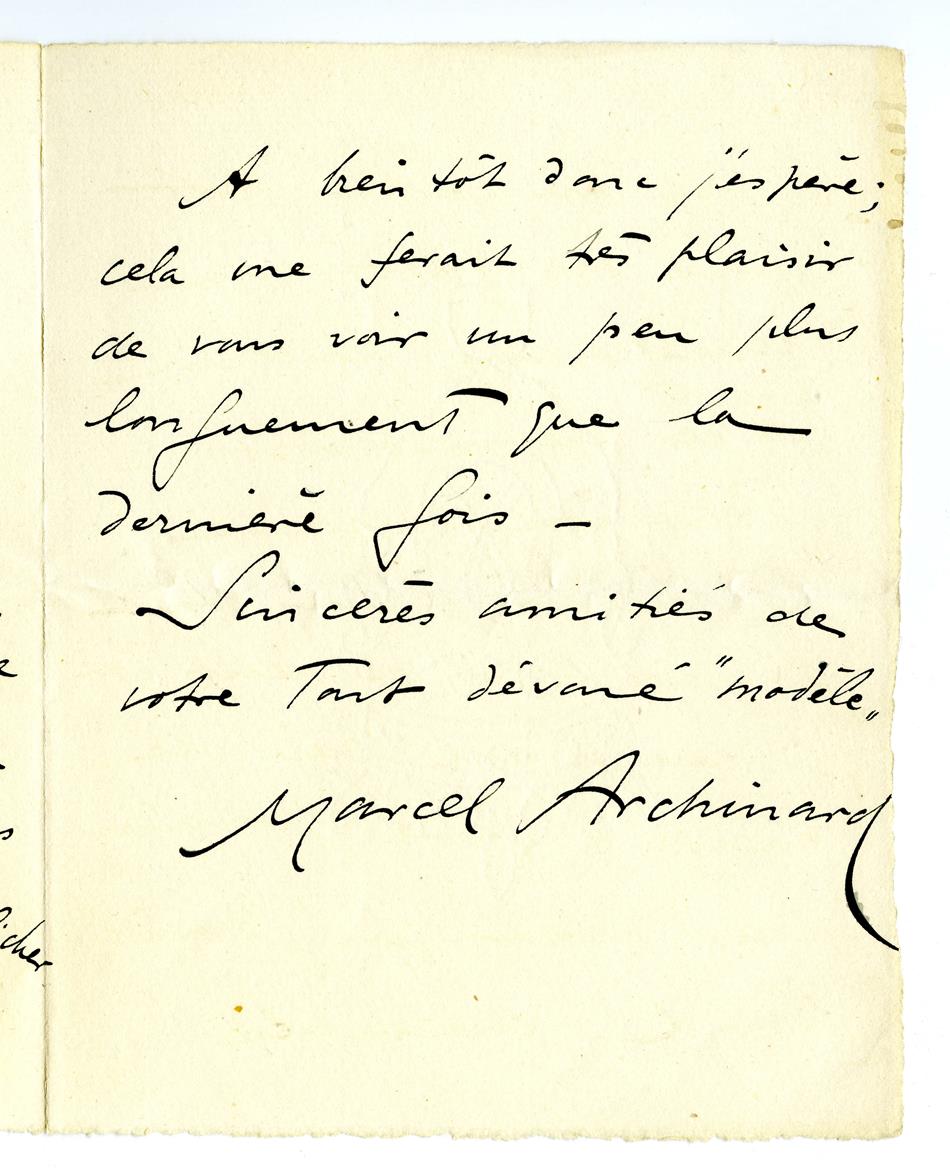 A bientôt donc j'espère;
cela me ferait très plaisir
de vous voir un peu plus
longuement que la
dernière fois –
Sincères amitiés de
votre Tout dévoué "modèle„
Marcel Archinard